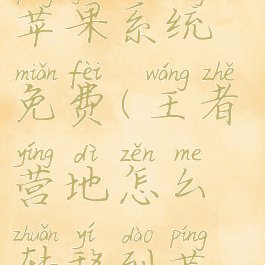 苹果系统
miǎn fèi wáng zhě
免费(王者
yíng dì zěn me
营地怎么
zhuǎn yí dào píng
转移到苹